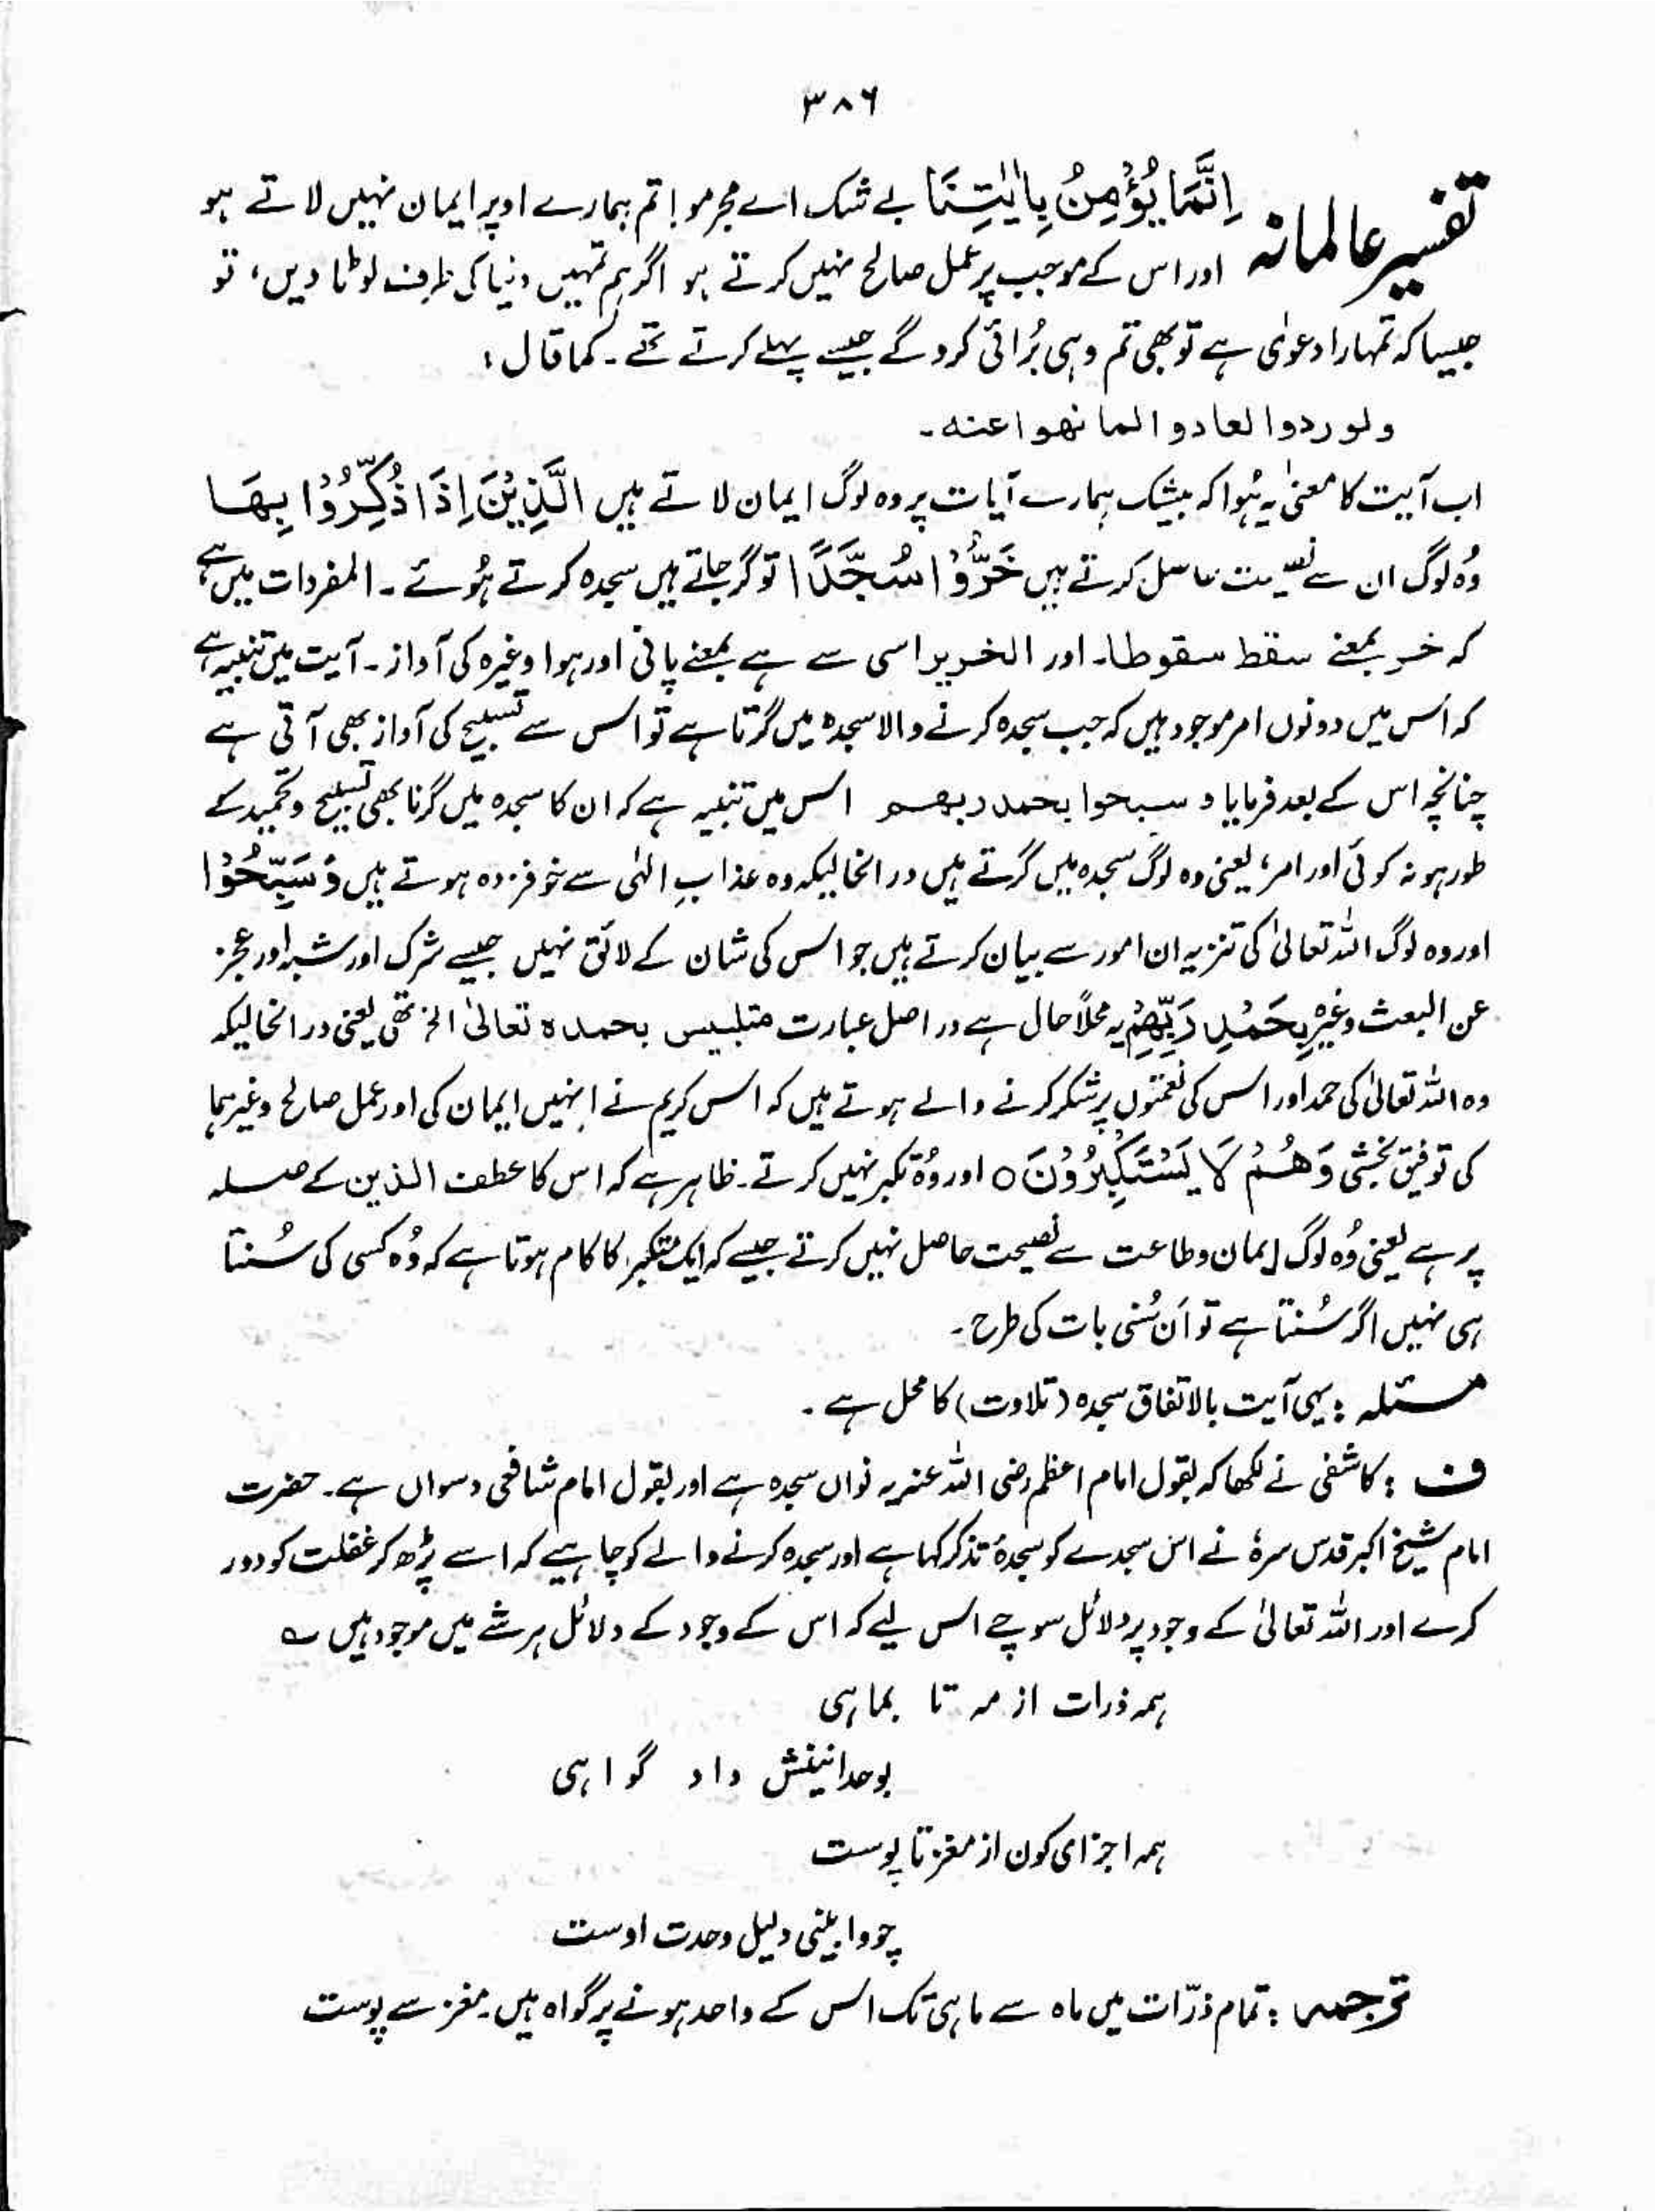 ۳۸۶
تفسیر عالمانہ اِنَّمَا یُؤْمِنُ بِاٰیٰتِنَا بے شک اے مجرمو! تم ہمارے اوپر ایمان نہیں لاتے ہو
اور اس کے موجب پر عمل صالح نہیں کرتے ہو اگر ہم تمہیں دنیا کی طرف لوٹا دیں، تو
جیسا کہ تمہارا دعوٰی ہے تو بھی تم وہی بُرائی کرو گے جیسے پہلے کرتے تھے۔ کما قال :
ولو ردوا لعادوا لما نھوا عنہ۔
اب آیت کا معنیٰ یہ ہُوا کہ بیشک ہمارے آیات پر وہ لوگ ایمان لاتے ہیں الَّذِیْنَ اِذَا ذُکِّرُوْا بِھَا
وُہ لوگ ان سے نصیحت حاصل کرتے ہیں خَرُّوْا سُجَّدًا تو گر جاتے ہیں سجدہ کرتے ہُوئے۔ المفردات میں ہے
کہ خر بمعنے سقط سقوطا۔ اور الخریر اسی سے ہے بمعنے پانی اور ہوا وغیرہ کی آواز۔ آیت میں تنبیہ ہے
کہ اس میں دونوں امر موجود ہیں کہ جب سجدہ کرنے والا سجدہ میں گرتا ہے تو اس سے تسبیح کی آواز بھی آتی ہے
چنانچہ اس کے بعد فرمایا و سبحوا بحمد ربھم اس میں تنبیہ ہے کہ ان کا سجدہ میں گرنا بھی تسبیح و تحمید کے
طور ہو نہ کوئی اور امر، یعنی وہ لوگ سجدہ میں گرتے ہیں در انحالیکہ وہ عذابِ الٰہی سے خوفزدہ ہوتے ہیں وَسَبَّحُوْا
اور وہ لوگ اللہ تعالیٰ کی تنزیہ ان امور سے بیان کرتے ہیں جو اس کی شان کے لائق نہیں جیسے شرک اور شبہ اور عجز
عن البعث وغیرہ بِحَمْدِ رَبِّھِمْ یہ محلاً حال ہے در اصل عبارت متلبیس بحمدہ تعالیٰ الخ تھی یعنی در انحالیکہ
وہ اللہ تعالیٰ کی حمد اور اس کی نعمتوں پر شکر کرنے والے ہوتے ہیں کہ اس کریم نے انہیں ایمان کی اور عمل صالح وغیرہما
کی توفیق بخشی وَھُمْ لَا یَسْتَکْبِرُوْنَ ○ اور وُہ تکبر نہیں کرتے۔ ظاہر ہے کہ اس کا عطف الذین کے صلہ
پر ہے یعنی وُہ لوگ ایمان و طاعت سے نصیحت حاصل نہیں کرتے جیسے کہ ایک متکبر کا کام ہوتا ہے کہ وُہ کسی کی سُنتا
ہی نہیں اگر سُنتا ہے تو اَن سُنی بات کی طرح۔
مسئلہ : یہی آیت بالاتفاق سجدہ (تلاوت) کا محل ہے۔
ف : کاشفی نے لکھا کہ بقول امام اعظم رضی اللہ عنہ یہ نواں سجدہ ہے اور بقول امام شافعی دسواں ہے۔ حضرت
امام شیخ اکبر قدس سرہٗ نے اس سجدے کو سجدۂ تذکر کہا ہے اور سجدہ کرنے والے کو چاہیے کہ اسے پڑھ کر غفلت کو دور
کرے اور اللہ تعالیٰ کے وجود پر دلائل سوچے اس لیے کہ اس کے وجود کے دلائل ہر شے میں موجود ہیں ؎
ہمہ ذرات از مہ تا بماہی
بوحدانیتش داد گواہی
ہمہ اجزای کون از مغز تا پوست
چو وا بینی دلیل وحدت اوست
ترجمہ : تمام ذرّات میں ماہ سے ماہی تک اس کے واحد ہونے پر گواہ ہیں۔ مغز سے پوست